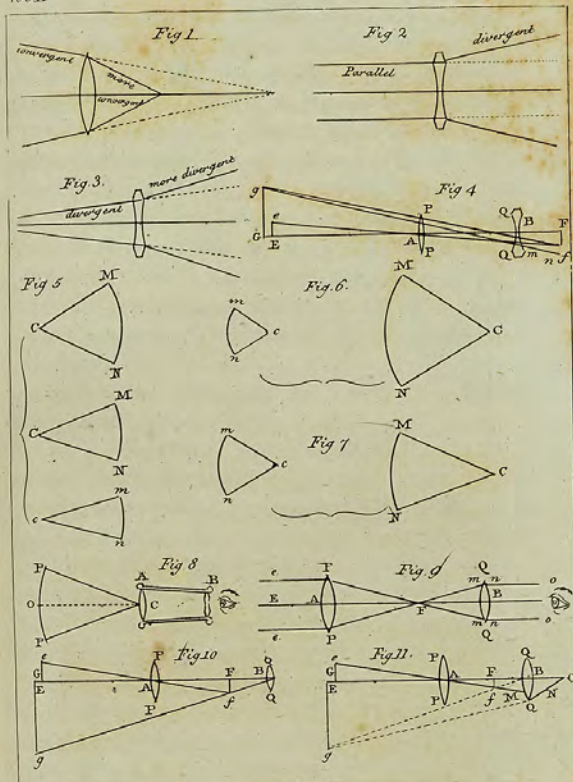 Fig 1
convergent
more
convergent
Fig 2
divergent
Parallel
Fig. 3.
more divergent
divergent
Fig 4
g
e
G
E
P
A
P
Q
B
F
Q
m
n
f
Fig 5
M
C
N
M
C
N
m
c
n
Fig. 6.
m
c
n
M
C
N
Fig 7
m
c
n
M
C
N
Fig 8
P
O
P
A
B
C
Fig. 9
e
E
e
P
A
P
F
Q
m
n
B
m
n
Q
o
o
Fig. 10
e
G
E
g
P
A
P
F
f
Q
B
Q
Fig. 11.
e
G
E
g
P
A
P
F
f
Q
B
M
Q
N